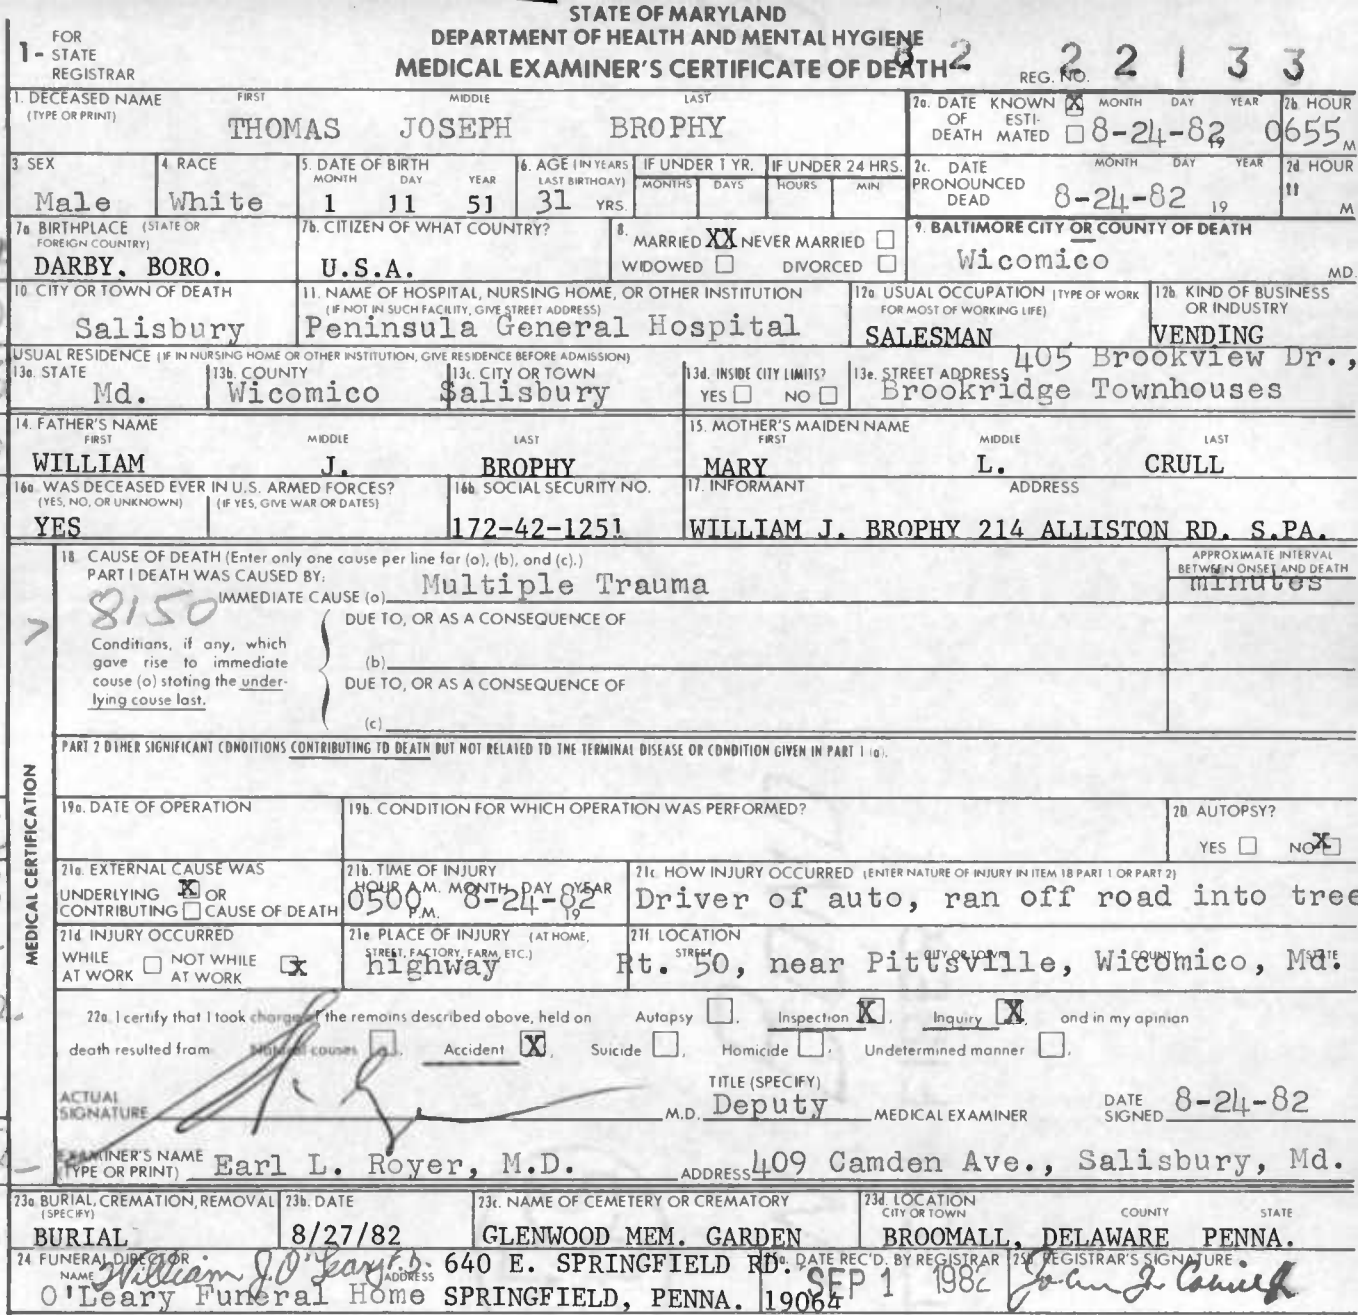 STATE OF MARYLAND
DEPARTMENT OF HEALTH AND MENTAL HYGIENE
MEDICAL EXAMINER'S CERTIFICATE OF DEATH
1- FOR STATE REGISTRAR
82 REG. NO. 22133
1. DECEASED NAME (TYPE OR PRINT) FIRST MIDDLE LAST
THOMAS JOSEPH BROPHY
2a. DATE OF DEATH KNOWN X ESTIMATED MONTH DAY YEAR 8-24-82 19
2b HOUR 0655 M
3 SEX Male
4. RACE White
5. DATE OF BIRTH MONTH DAY YEAR 1 11 51
6. AGE (IN YEARS LAST BIRTHDAY) 31 YRS.
IF UNDER 1 YR. MONTHS DAYS
IF UNDER 24 HRS. HOURS MIN
2c. DATE PRONOUNCED DEAD MONTH DAY YEAR 8-24-82 19
2d HOUR " M
7a BIRTHPLACE (STATE OR FOREIGN COUNTRY) DARBY. BORO.
7b. CITIZEN OF WHAT COUNTRY? U.S.A.
8. MARRIED XX NEVER MARRIED WIDOWED DIVORCED
9. BALTIMORE CITY OR COUNTY OF DEATH Wicomico MD.
10. CITY OR TOWN OF DEATH Salisbury
11. NAME OF HOSPITAL, NURSING HOME, OR OTHER INSTITUTION (IF NOT IN SUCH FACILITY, GIVE STREET ADDRESS) Peninsula General Hospital
12a USUAL OCCUPATION (TYPE OF WORK FOR MOST OF WORKING LIFE) SALESMAN
12b. KIND OF BUSINESS OR INDUSTRY VENDING
USUAL RESIDENCE (IF IN NURSING HOME OR OTHER INSTITUTION, GIVE RESIDENCE BEFORE ADMISSION)
13a. STATE Md.
13b. COUNTY Wicomico
13c. CITY OR TOWN Salisbury
13d. INSIDE CITY LIMITS? YES NO
13e. STREET ADDRESS 405 Brookview Dr., Brookridge Townhouses
14. FATHER'S NAME FIRST MIDDLE LAST
WILLIAM J. BROPHY
15. MOTHER'S MAIDEN NAME FIRST MIDDLE LAST
MARY L. CRULL
16a WAS DECEASED EVER IN U.S. ARMED FORCES? (YES, NO, OR UNKNOWN) (IF YES, GIVE WAR OR DATES) YES
16b. SOCIAL SECURITY NO. 172-42-1251
17. INFORMANT ADDRESS
WILLIAM J. BROPHY 214 ALLISTON RD. S.PA.
18 CAUSE OF DEATH (Enter only one cause per line for (a), (b), and (c).)
PART I DEATH WAS CAUSED BY:
IMMEDIATE CAUSE (a) Multiple Trauma
APPROXIMATE INTERVAL BETWEEN ONSET AND DEATH minutes
8150
DUE TO, OR AS A CONSEQUENCE OF
Conditions, if any, which gave rise to immediate cause (a) stating the underlying cause last.
(b)
DUE TO, OR AS A CONSEQUENCE OF
(c)
PART 2 OTHER SIGNIFICANT CONDITIONS CONTRIBUTING TO DEATH BUT NOT RELATED TO THE TERMINAL DISEASE OR CONDITION GIVEN IN PART 1 (a).
MEDICAL CERTIFICATION
19a. DATE OF OPERATION
19b. CONDITION FOR WHICH OPERATION WAS PERFORMED?
20 AUTOPSY? YES NO X
21a. EXTERNAL CAUSE WAS UNDERLYING X OR CONTRIBUTING CAUSE OF DEATH
21b. TIME OF INJURY HOUR A.M. P.M. MONTH DAY YEAR 19 0500 8-24-82
21c HOW INJURY OCCURRED (ENTER NATURE OF INJURY IN ITEM 18 PART 1 OR PART 2)
Driver of auto, ran off road into tree
21d INJURY OCCURRED WHILE AT WORK NOT WHILE AT WORK X
21e PLACE OF INJURY (AT HOME, STREET, FACTORY, FARM, ETC.) highway
21f. LOCATION STREET CITY OR TOWN COUNTY STATE
Rt. 50, near Pittsville, Wicomico, Md.
22a I certify that I took charge of the remains described above, held on Autopsy , Inspection X , Inquiry X , and in my opinion
death resulted from Natural causes , Accident X , Suicide , Homicide , Undetermined manner .
ACTUAL SIGNATURE M.D. TITLE (SPECIFY) Deputy MEDICAL EXAMINER DATE SIGNED 8-24-82
EXAMINER'S NAME (TYPE OR PRINT) Earl L. Royer, M.D. ADDRESS 409 Camden Ave., Salisbury, Md.
23a BURIAL, CREMATION, REMOVAL (SPECIFY) BURIAL
23b. DATE 8/27/82
23c. NAME OF CEMETERY OR CREMATORY GLENWOOD MEM. GARDEN
23d. LOCATION CITY OR TOWN COUNTY STATE
BROOMALL, DELAWARE PENNA.
24 FUNERAL DIRECTOR NAME William J. O'Leary F.D. O'Leary Funeral Home
ADDRESS 640 E. SPRINGFIELD RD. SPRINGFIELD, PENNA. 19064
DATE REC'D. BY REGISTRAR SEP 1 1982
REGISTRAR'S SIGNATURE